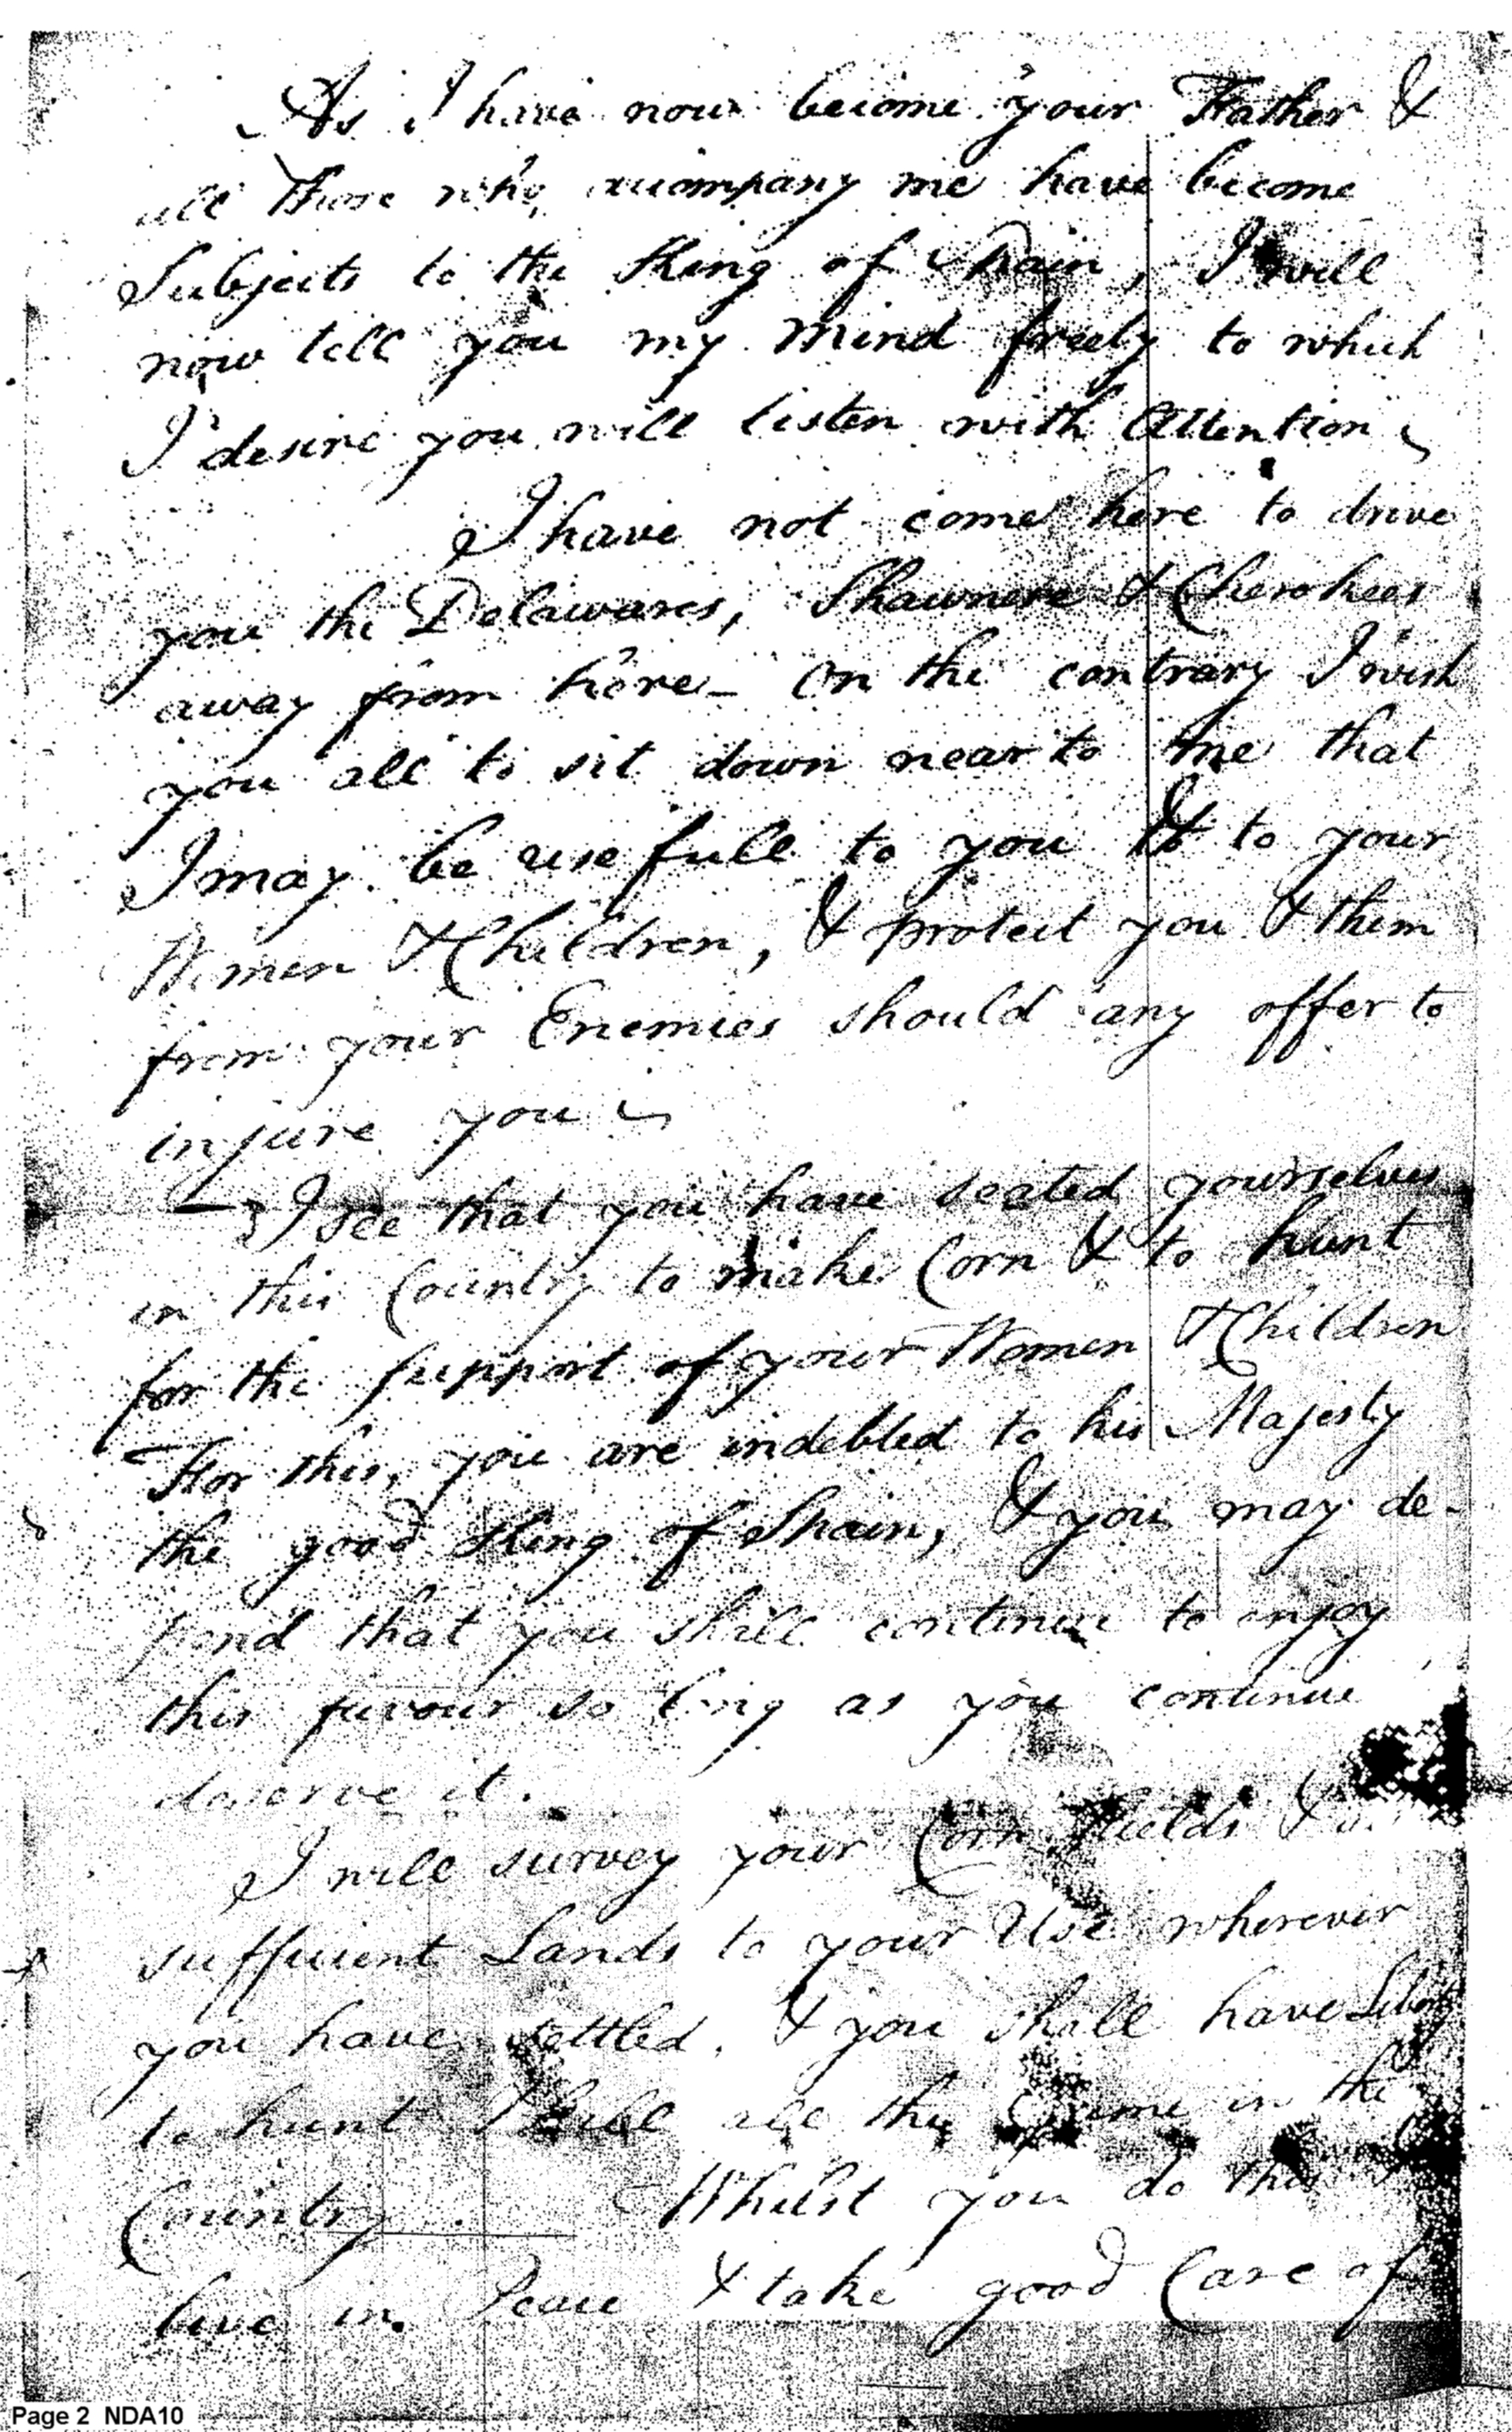 As I have now become your Father &
all those who accompany me have become
Subjects to the King of Spain, I will
now tell you my mind freely to which
I desire you will listen with Attention
I have not come here to drive
you the Delawares, Shawnese & Cherokees
away from here – On the contrary I wish
you all to sit down near to me that
I may be usefull to you & to your
Women & Children, & protect you & them
from your Enemies should any offer to
injure you
I see that you have seated yourselves
in this Country to make Corn & to hunt
for the support of your Women & Children
For this, you are indebted to his Majesty
the good King of Spain, & you may de-
pend that you shall continue to enjoy
this favour so long as you continue
deserve it.
I will survey your Corn Fields &
sufficient Lands to your Use wherever
you have settled. & you shall have Liberty
to hunt & kill all the Game in the
Country. Whilst you do this
live in Peace & take good Care of
Page 2 NDA10